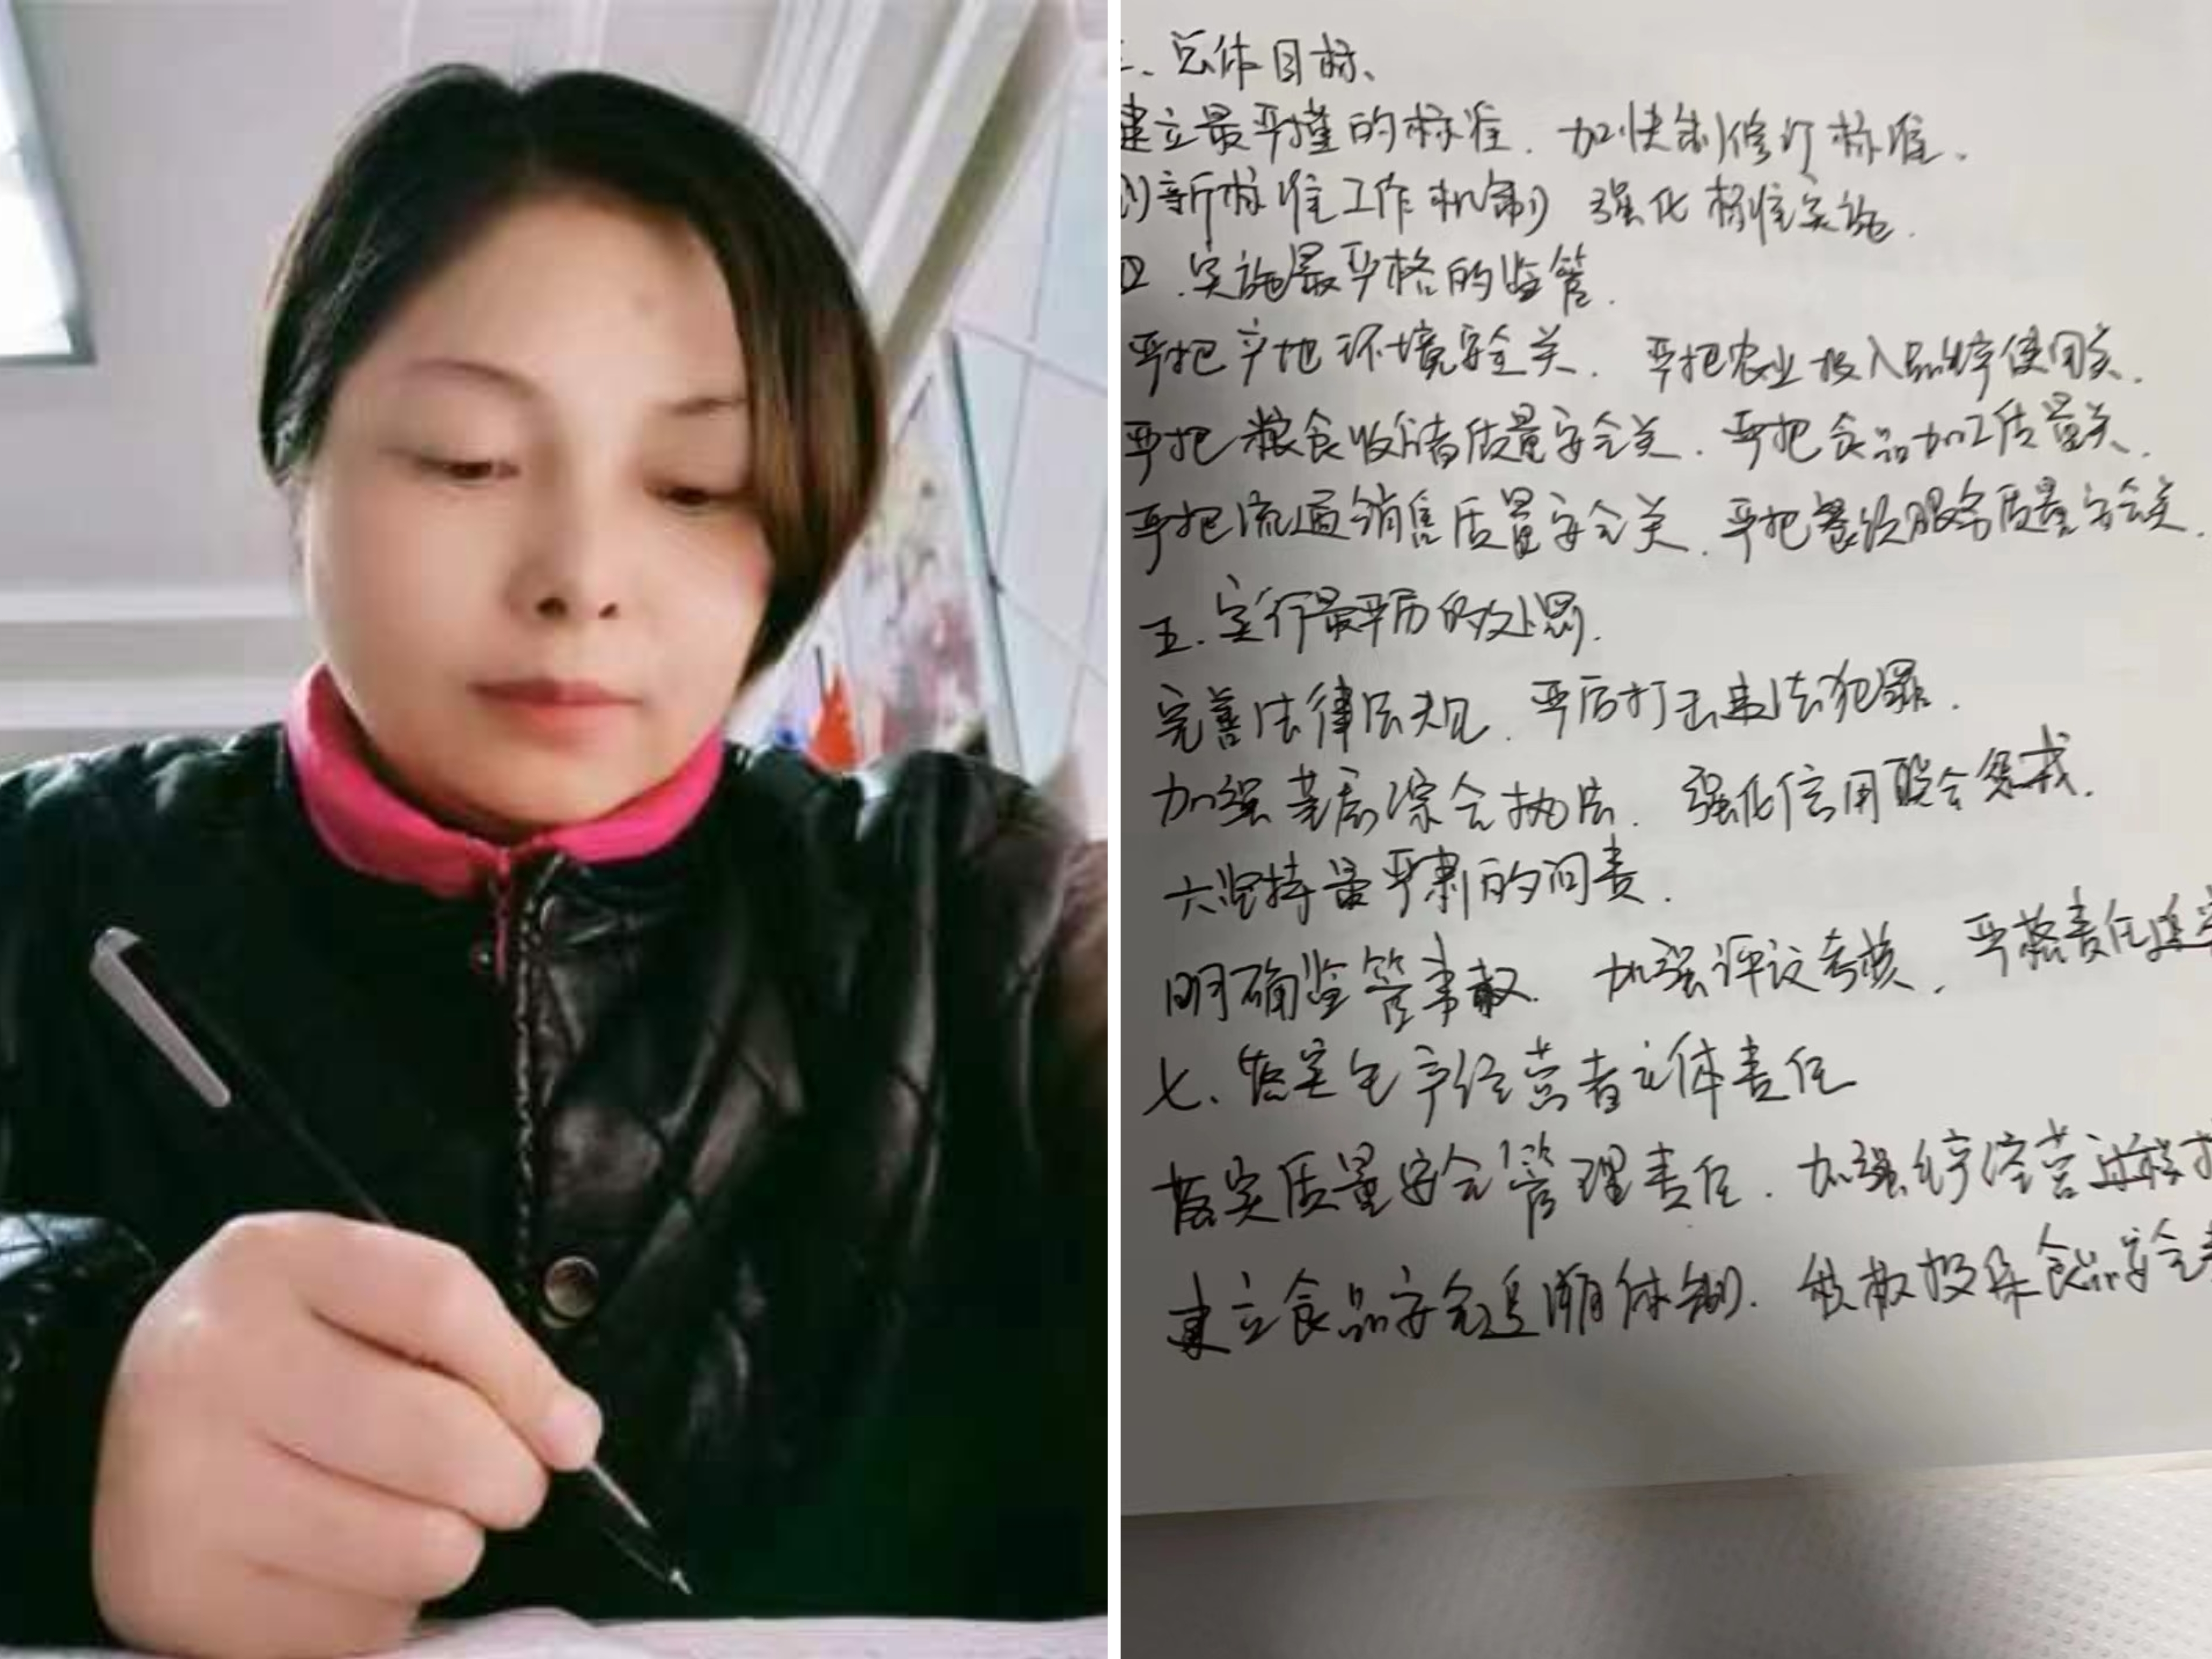 、总体目标、
建立最严谨的标准.加快制修订标准.
创新标准工作机制 强化标准实施.
四.实施最严格的监管.
严把产地环境安全关.严把农业投入品生产使用关.
严把粮食收储质量安全关.严把食品加工质量关.
严把流通销售质量安全关.严把餐饮服务质量安全关.
五.实行最严厉的处罚.
完善法律法规.严厉打击违法犯罪.
加强基层综合执法.强化信用联合惩戒.
六坚持最严肃的问责.
明确监管事权.加强评议考核.严格责任追
七、落实生产经营者主体责任
落实质量安全管理责任.加强生产经营过程
建立食品安全追溯体制.积极投保食品安全